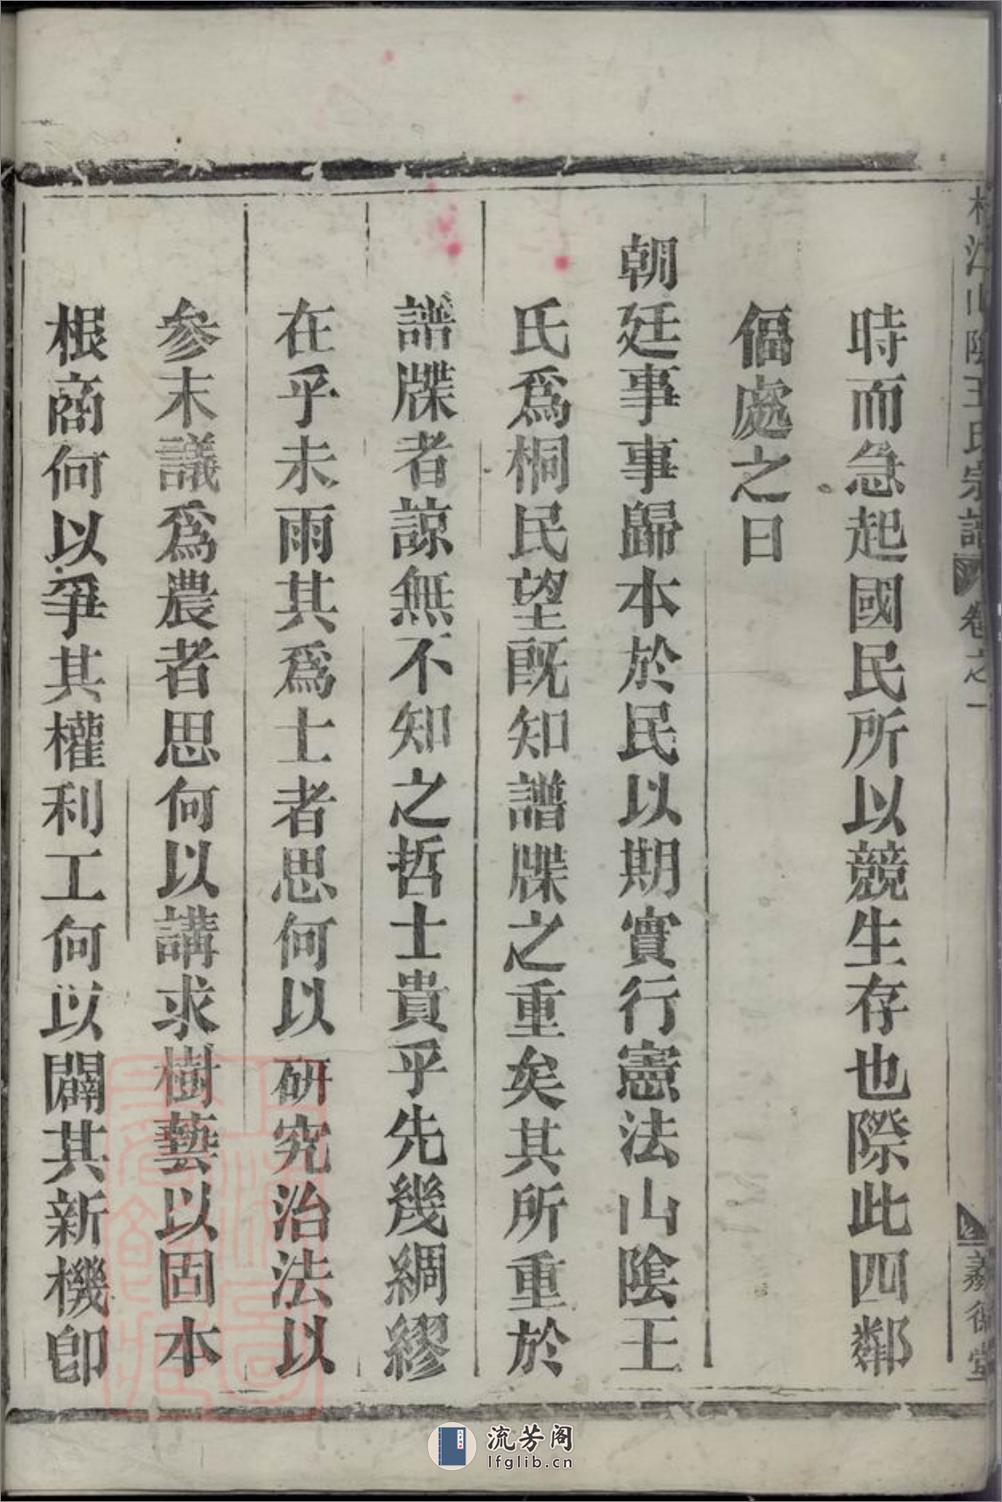 時而急起國民所以競生存也際此四鄰
偪處之日
朝廷事事歸本於民以期實行憲法山陰王
氏爲桐民望既知譜牒之重矣其所重於
譜牒者諒無不知之哲士貴乎先幾綢繆
在乎未雨其爲士者思何以研究治法以
參末議爲農者思何以講求樹藝以固本
根商何以爭其權利工何以闢其新機卽
江山陰王氏宗譜
卷之一
堂
流芳阁
lfglib.cn